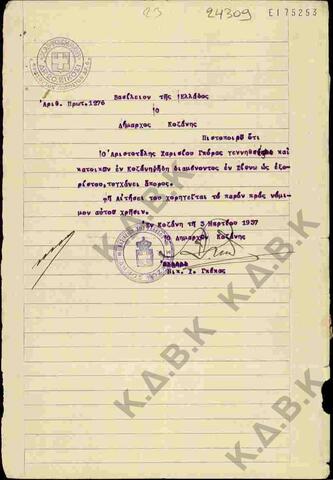 23 24309 ΕΙ 75253
Βασίλειον τῆς Ἑλλάδος
Ἀριθ. Πρωτ. 1276
Ο
Δήμαρχος Κοζάνης
Πιστοποιεῖ ὅτι
Ὁ Ἀριστοτέλης Χαρισίου Γκόρας γεννηθεὶς καὶ
κατοικῶν ἐν Κοζάνῃ ἤδη διαμένοντας ἐν ὡς ἐξο
ριστος, τυγχάνει ἄπορος.
τῇ Αἰτήσει του χορηγεῖται τὸ παρὸν πρὸς νόμι
μον αὐτοῦ χρῆσιν.
Ἐν Κοζάνῃ τῇ 3 Μαρτίου 1937
Ὁ Δήμαρχος Κοζάνης
Νικ. Χ. Γκόβας
Κ.Δ.Β.Κ
Κ.Δ.Β.Κ
Κ.Δ.Β.Κ